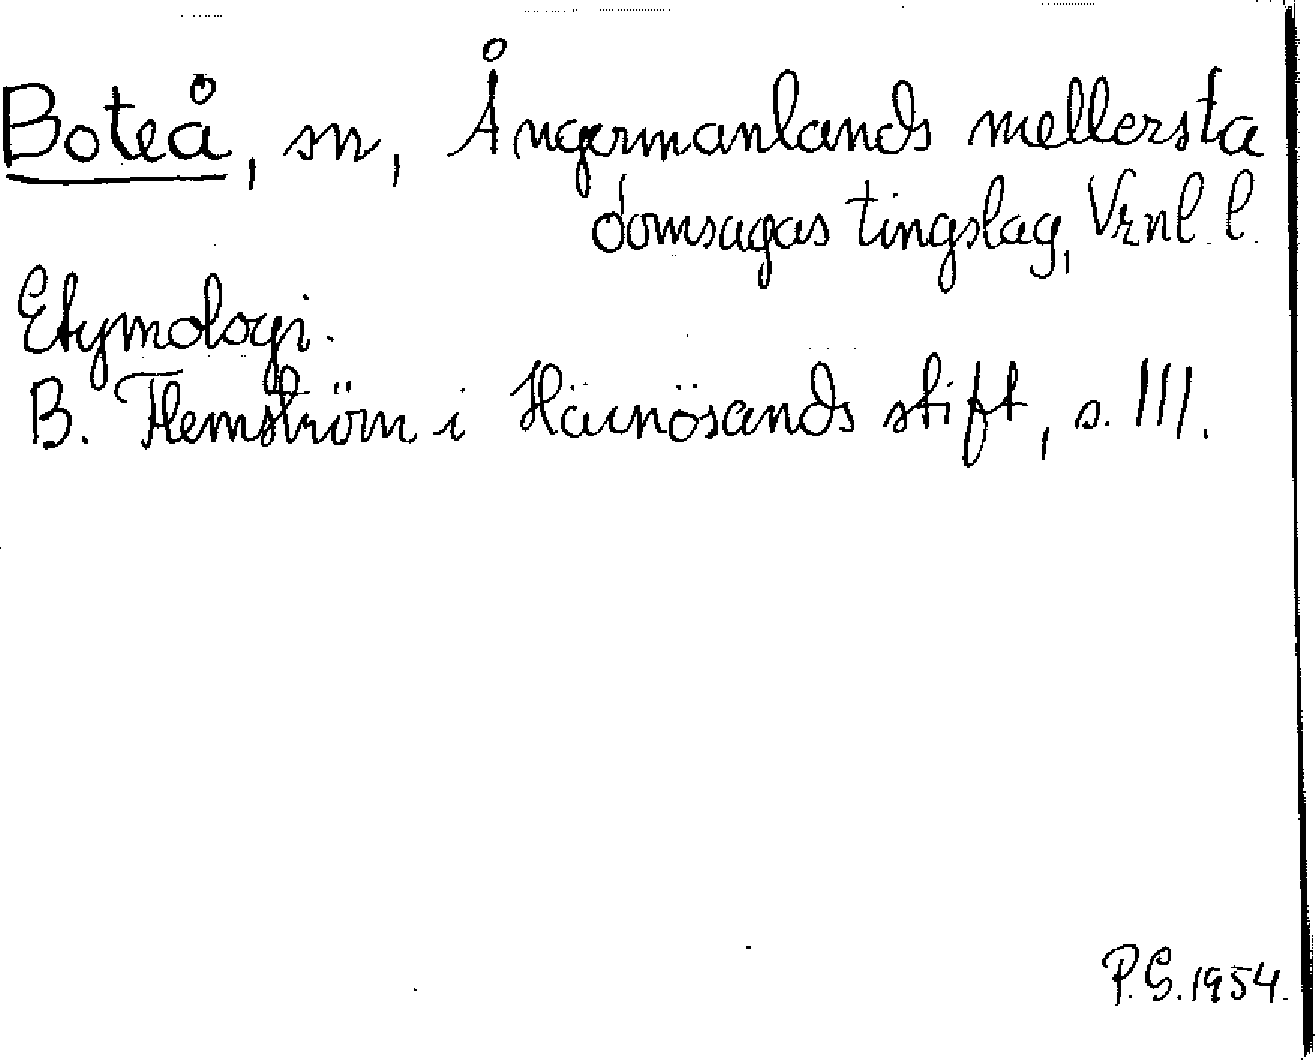 Boteå, sn, Ångermanlands mellersta
domsagas tingslag, Vrnl. l.
Etymologi.
B. Flemström i Härnösands stift, s. 111.
P.S. 1954.